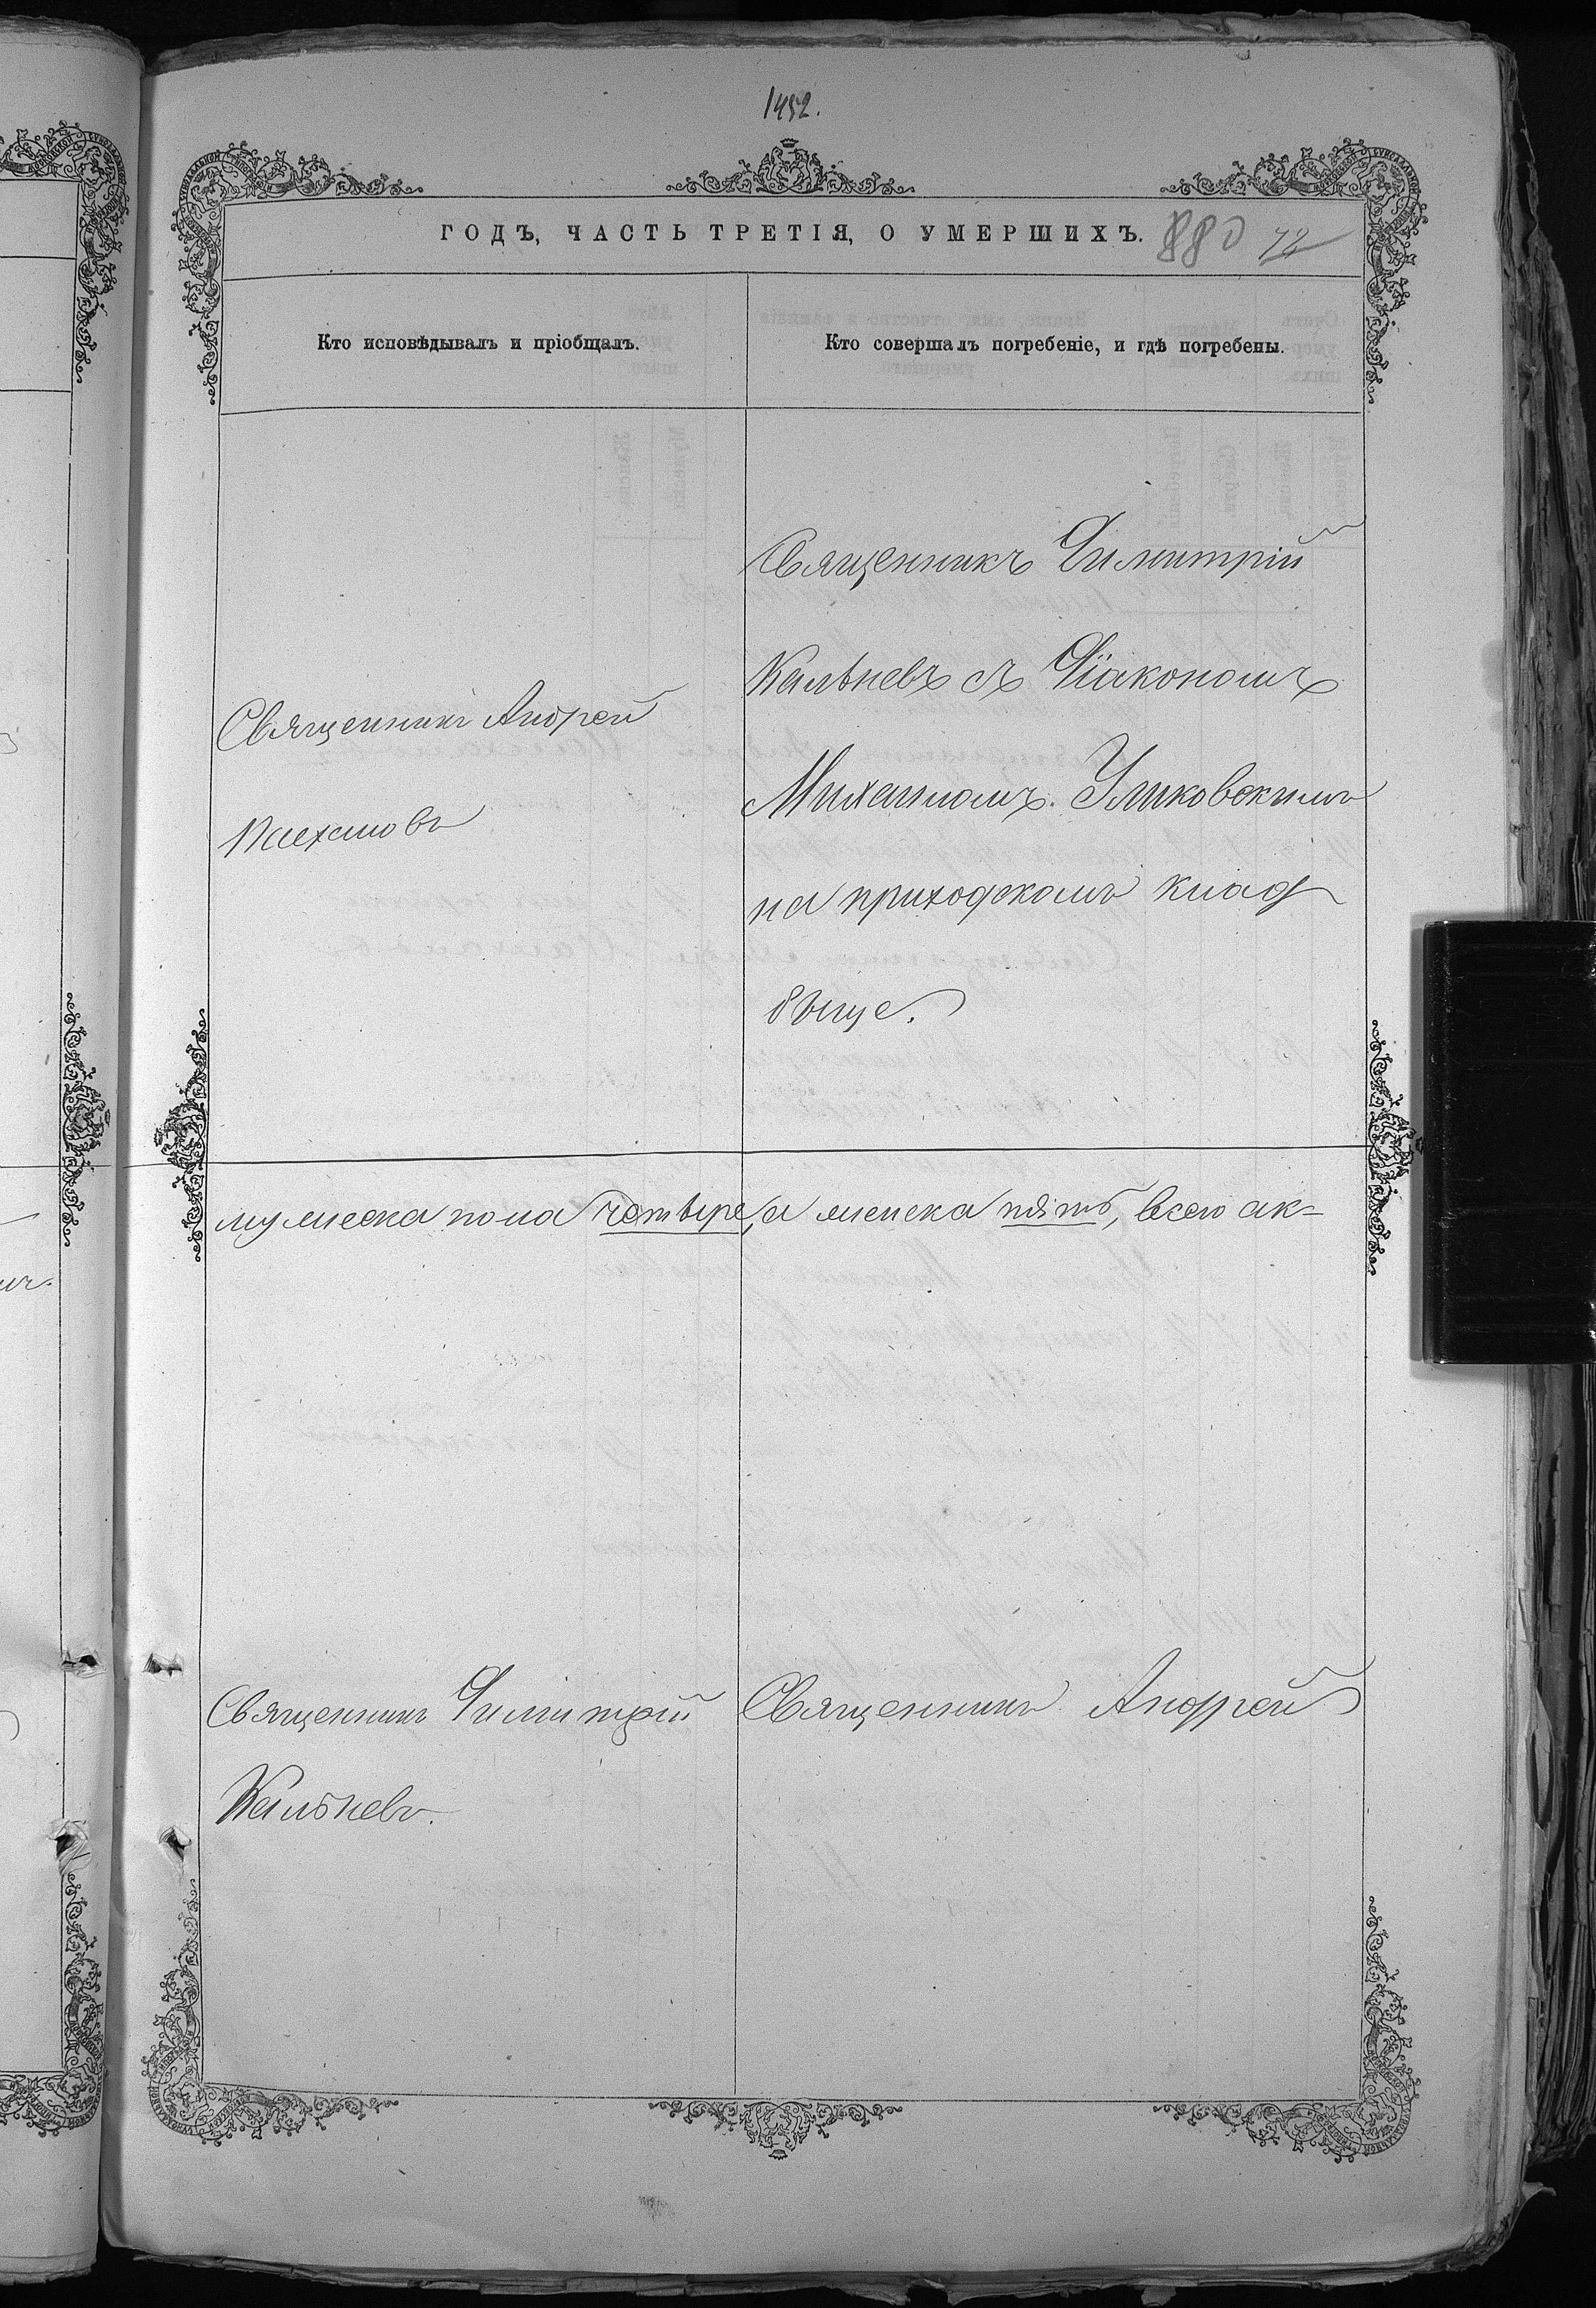 1452.
ГОДЪ, ЧАСТЬ ТРЕТІЯ, О УМЕРШИХЪ. 880 72
Кто исповѣдывалъ и пріобщалъ.
Кто совершалъ погребеніе, и гдѣ погребены.
Священникъ Андрей
Священникъ Димитрій
Кальневъ съ Діакономъ
Михаиломъ
на приходскомъ клад
бище.
мужеска пола четыре, а женска пять, всего ак-
Священникъ Димитрій
Кальневъ.
Священникъ Андрей